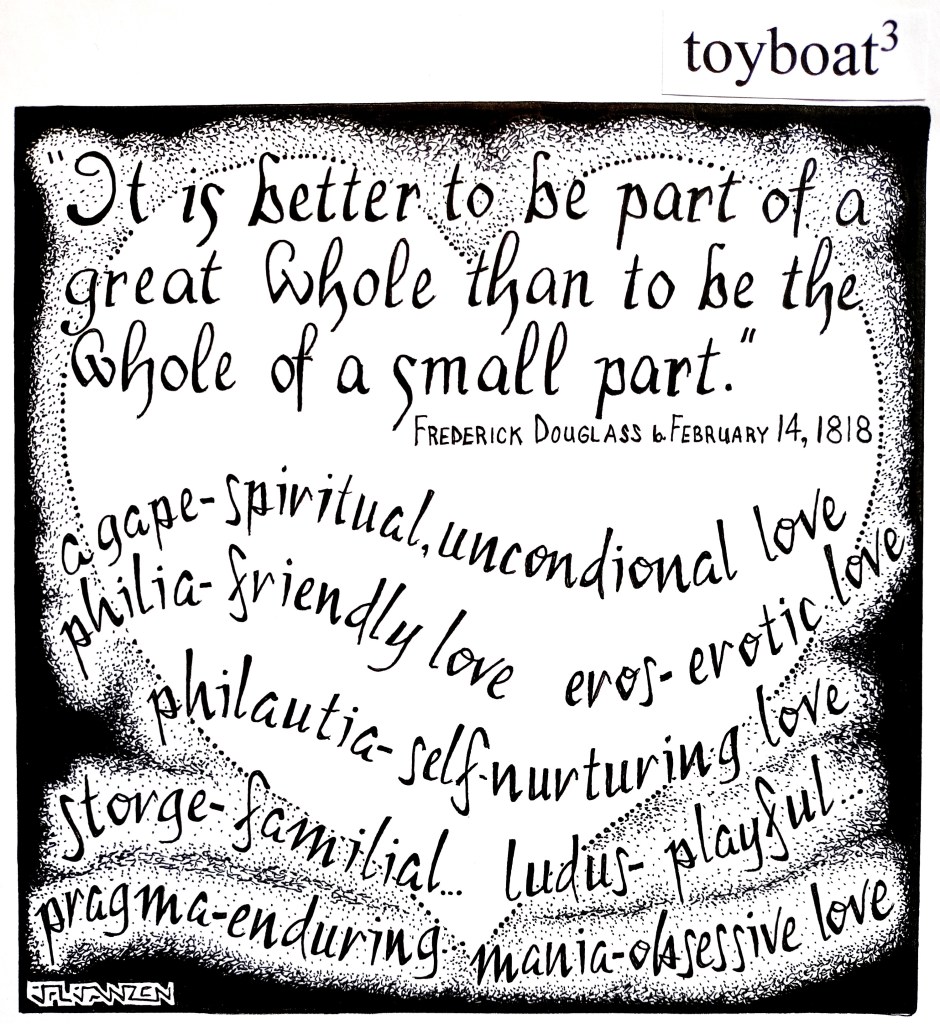 toyboat³
"It is better to be part of a
great whole than to be the
whole of a small part."
FREDERICK DOUGLASS b. FEBRUARY 14, 1818
agape-spiritual, uncondional love
philia-friendly love eros-erotic love
philautia-self-nurturing love
storge-familial... ludus-playful...
pragma-enduring mania-obsessive love
JPL·JANZEN